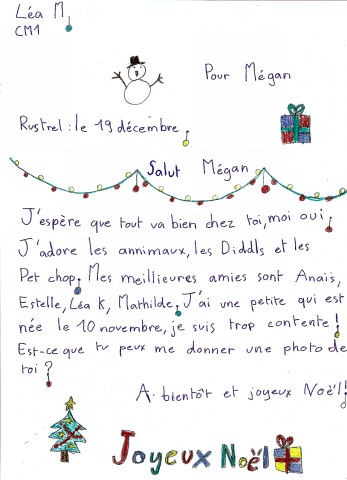 Léa M.
CM1
Pour Mégan
Rustrel : le 19 décembre.
Salut Mégan
J'espère que tout va bien chez toi, moi oui.
J'adore les annimaux, les Diddls et les
Pet chop. Mes meillieures amies sont Anaïs,
Estelle, Léa K, Mathilde. J'ai une petite qui est
née le 10 novembre, je suis trop contente !
Est-ce que tu peux me donner une photo de
toi ?
A bientôt et joyeux Noël !
Joyeux Noël